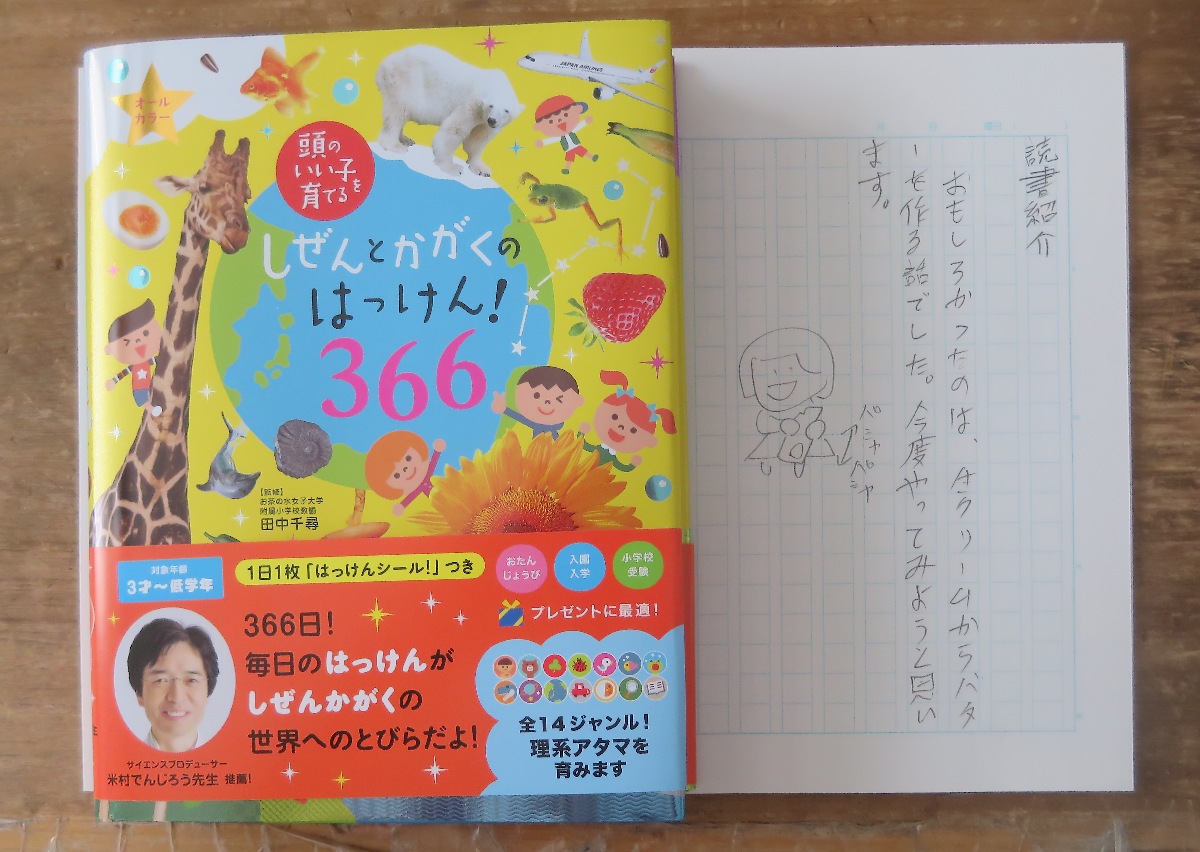 オール
カラー
JAPAN AIRLINES
頭の
いい子を
育てる
しぜんとかがくの
はっけん!
366
【監修】
お茶の水女子大学
附属小学校教諭
田中千尋
対象年齢
3才~低学年
1日1枚「はっけんシール!」つき
おたん
じょうび
入園
入学
小学校
受験
プレゼントに最適!
366日!
毎日のはっけんが
しぜんかがくの
世界へのとびらだよ!
サイエンスプロデューサー
米村でんじろう先生 推薦!
全14ジャンル!
理系アタマを
育みます
読書紹介
おもしろかったのは、生クリームからバタ
ーを作る話でした。今度やってみようと思い
ます。
パシャパシャ